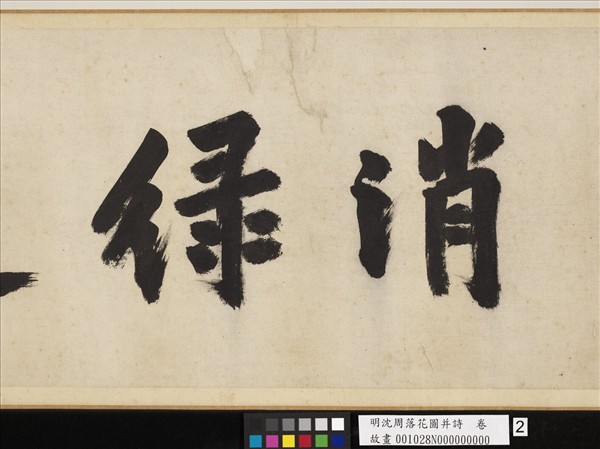 消緑
明沈周落花圖并詩　卷
故畫 001028N000000000
2